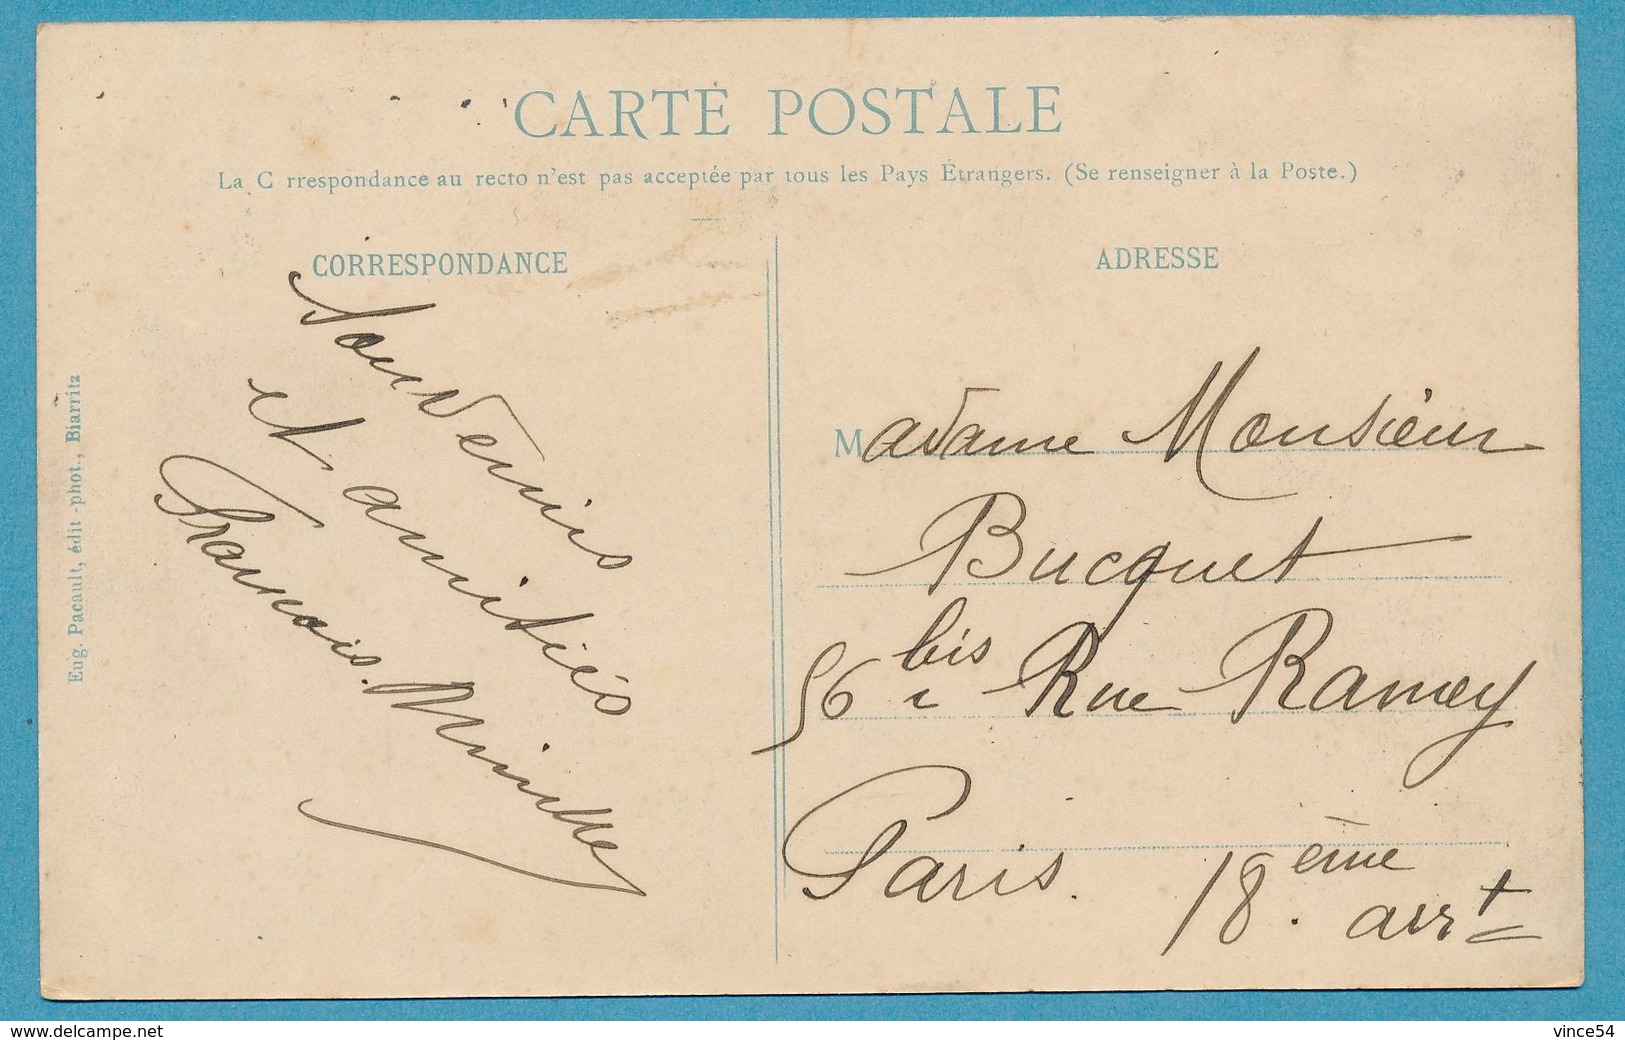 CARTE POSTALE
La C rrespondance au recto n'est pas acceptée par tous les Pays Étrangers. (Se renseigner à la Poste.)
CORRESPONDANCE
Souvenirs
et amitiés
François.
Eug. Pacault, édit -phot., Biarritz
ADRESSE
Madame Monsieur
Bucquet
56 bis Rue Ramey
Paris. 18.ème arrt
www.delcampe.net
vince54